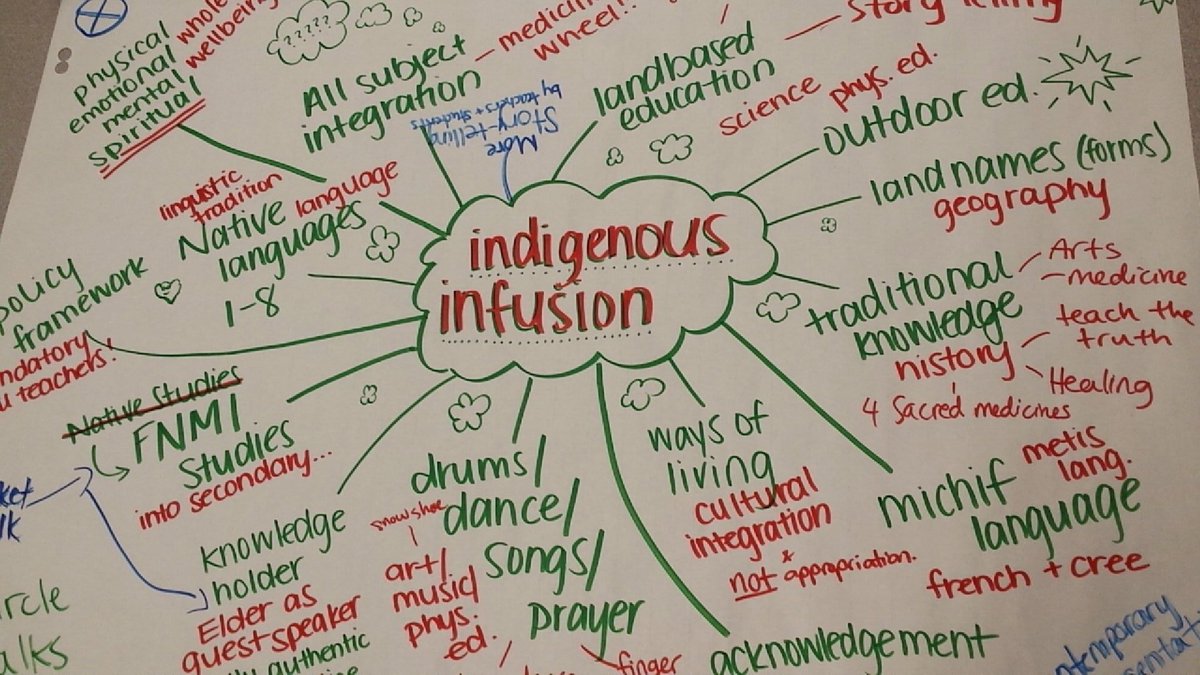 physical
emotional
mental
spiritual
wellbeing
?????
All subject
integration
medicine
wheel!!
More
Story-telling
by teachers + students
landbased
education
story telling
science
phys. ed.
outdoor ed.
land names (forms)
geography
linguistic
tradition
Native language
languages
1-8
indigenous
infusion
policy
framework
teachers!
traditional
knowledge
Arts
medicine
history
teach the
truth
Healing
4 Sacred medicines
Native Studies
FNMI
Studies
into secondary...
knowledge
holder
Elder as
guest speaker
authentic
drums/
dance/
songs/
prayer
snowshoe
art/
music/
phys.
ed.
finger
ways of
living
cultural
integration
* not appropriation.
michif
language
metis
lang.
french + cree
acknowledgement